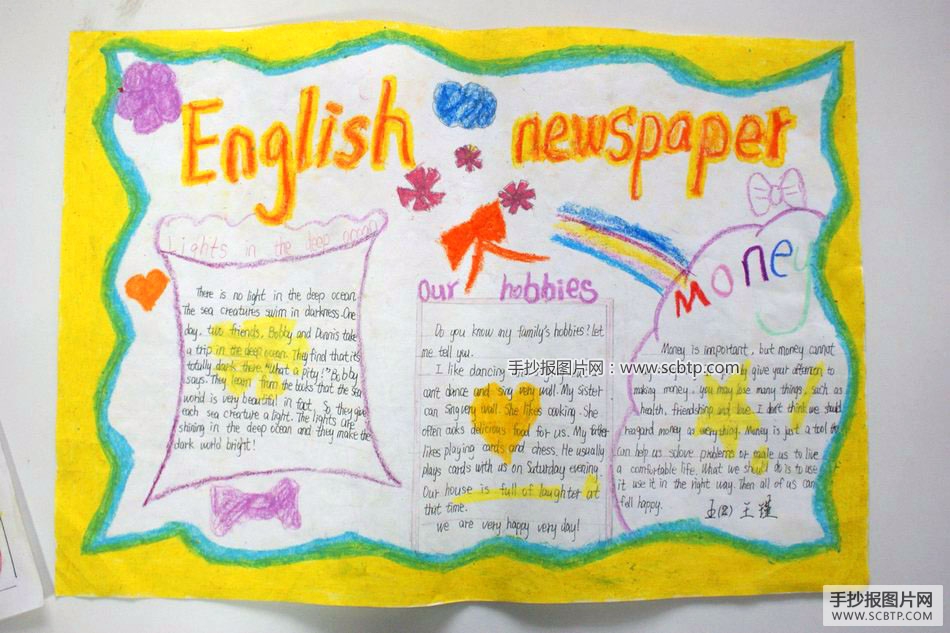 English newspaper
Lights in the deep ocean
There is no light in the deep ocean.
The sea creatures swim in darkness. One
day, two friends, Bobby and Dennis take
a trip in the deep ocean. They find that it's
totally dark there. "What a pity!" Bobby
says. They learn from the books that the sea
world is very beautiful in fact. So they give
each sea crearture a light. The lights are
shining in the deep ocean and they make the
dark world bright!
Our hobbies
Do you know my family's hobbies? let
me tell you.
I like dancing
can't dance and sing very well. My sister
can sing very well. She likes cooking. She
often cooks delicious food for us. My father
likes playing cards and chess. He usually
plays cards with us on Saturday evening.
Our house is full of laughter at
that time.
we are very happy very day!
Money
Money is important, but money cannot
give your attention to
making money, you may lose many things, such as
health, friendship and love. I don't think we should
regard money as everything. Money is just a tool
can help us solove problems or make us to live
a comfortable life. What we should do is to use
it use it in the right way. Then all of us can
fell happy.
王瑾
手抄报图片网:www.scbtp.com
手抄报图片网
WWW.SCBTP.COM